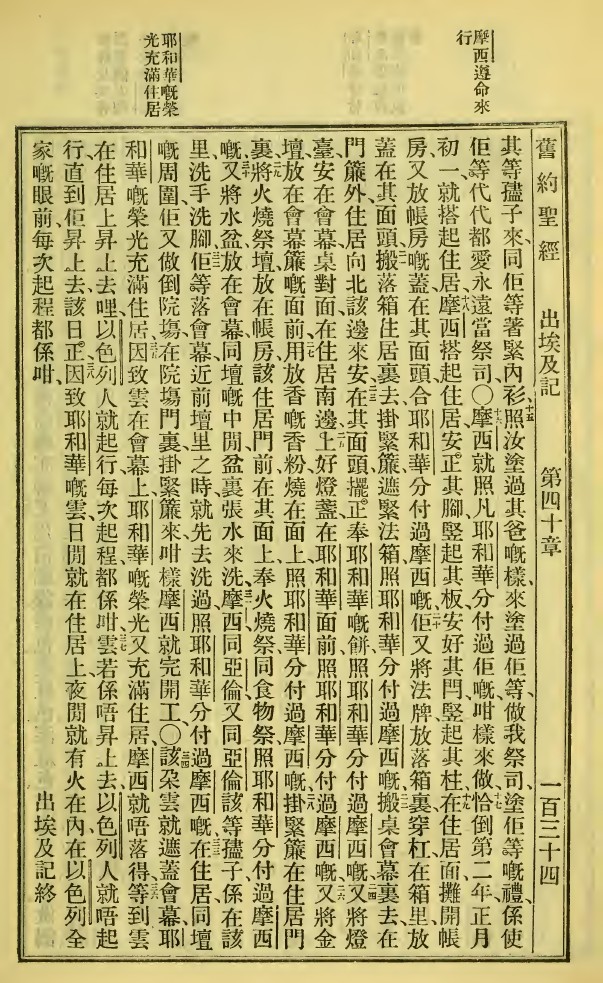 摩西遵命來
行
耶和華嘅榮
光充滿住居
舊約聖經 出埃及記 第四十章 一百三十四
其等孻子來、同佢等著緊內衫、十五照汝塗過其爸嘅樣、來塗過佢等、做我祭司、塗佢等嘅禮、係使
佢等代代都愛永遠當祭司○十六摩西就照凡耶和華分付過佢嘅咁樣來做、十七恰到第二年正月
初一、就搭起住居、十八摩西搭起住居、安正其腳、竪起其板、安好其閂、竪起其柱、十九在住居面攤開帳
房、又放帳房嘅蓋在其面頭、合耶和華分付過摩西嘅、二十佢又將法牌放落箱裏、穿杠在箱里、放
蓋在其面頭、二一搬落箱住居裏去、掛緊簾遮緊法箱、照耶和華分付過摩西嘅、二二搬桌會幕裏去、在
門簾外住居向北該邊來安、二三在其面頭擺正奉耶和華嘅餅、照耶和華分付過摩西嘅、二四又將燈
臺安在會幕、桌對面、在住居南邊、二五上好燈盞在耶和華面前、照耶和華分付過摩西嘅、二六又將金
壇放在會幕簾嘅面前、二七用放香嘅香粉燒在面上、照耶和華分付過摩西嘅、二八掛緊簾在住居門
裏、二九將火燒祭壇放在帳房該住居門前、在其面上奉火燒祭同食物祭、照耶和華分付過摩西
嘅、三十又將水盆放在會幕同壇嘅中間、盆裏張水來洗、三一摩西同亞倫、又同亞倫該等孻子、係在該
里洗手洗腳、三二佢等落會幕近前壇里之時、就先去洗過、照耶和華分付過摩西嘅、三三在住居同壇
嘅周圍、佢又做倒院塲、在院塲門裏掛緊簾來、咁樣摩西就完開工○三四該朶雲就遮蓋會幕、耶
和華嘅榮光充滿住居、三五因致雲在會幕上、耶和華嘅榮光又充滿住居、摩西就唔落得、三六等到雲
在住居上昇上去哩、以色列人就起行、每次起程都係咁、三七雲若係唔昇上去、以色列人就唔起
行、直到佢昇上去該日正、三八因致耶和華嘅雲、日間就在住居上、夜間就有火在內、在以色列全
家嘅眼前、每次起程都係咁、 出埃及記終